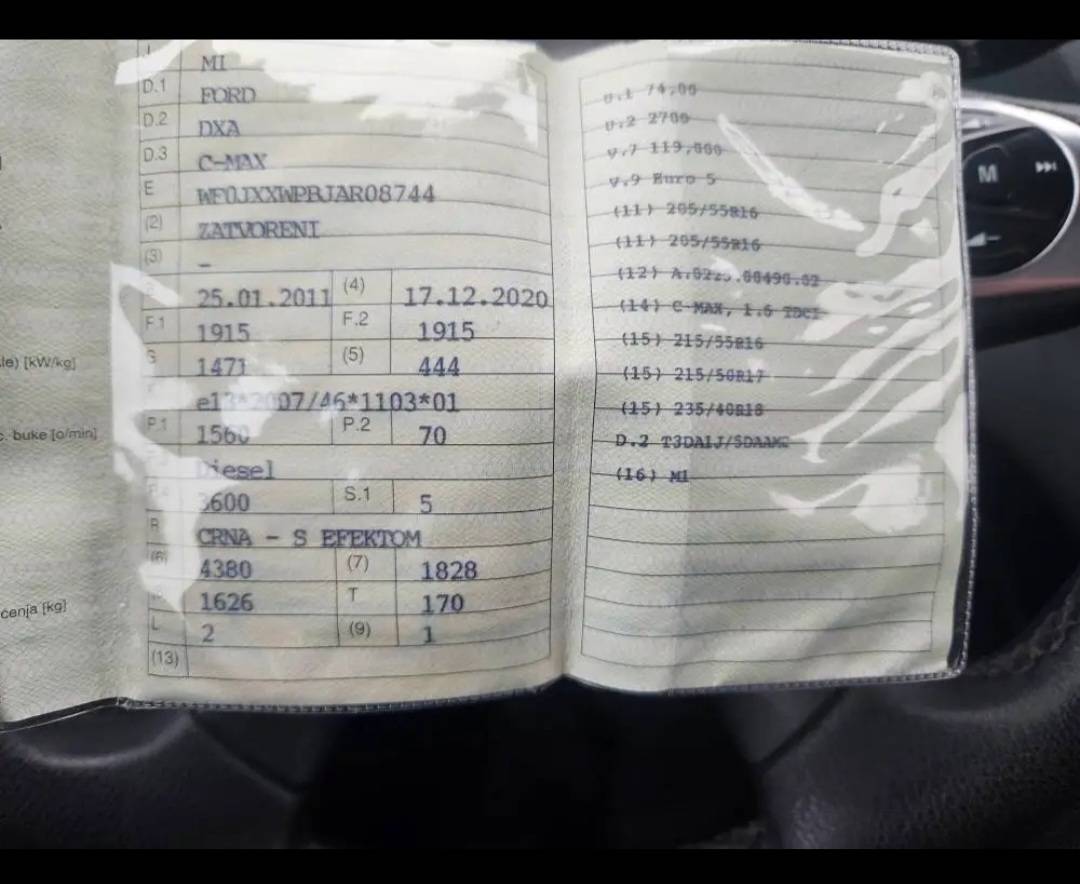 J
MI
D.1 FORD
D.2 DXA
D.3 C-MAX
E WF0JXXWPBJAR08744
(2) ZATVORENI
(3) –
25.01.2011 (4) 17.12.2020
F.1 1915 F.2 1915
G 1471 (5) 444
e13*2007/46*1103*01
P.1 1560 P.2 70
Diesel
3600 S.1 5
R CRNA - S EFEKTOM
(6) 4380 (7) 1828
1626 T 170
L 2 (9) 1
(13)
le) [kW/kg]
c. buke [o/min]
ćenja [kg]
U.1 74,00
U.2 2700
V.7 119,000
V.9 Euro 5
(11) 205/55R16
(11) 205/55R16
(12)
(14) C-MAX, 1.6 TDCI
(15) 215/55R16
(15) 215/50R17
(15) 235/40R18
D.2
(16) M1
M